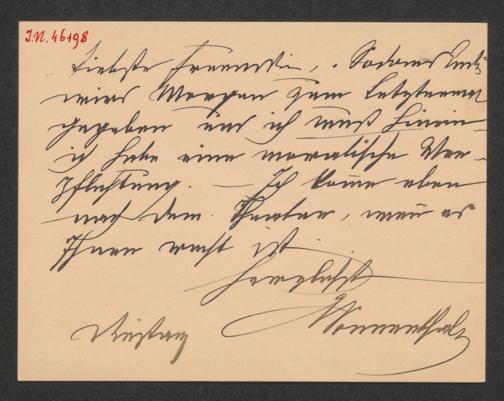 I.N. 46498
Liebste Freundin, „Sodoms Ende“
wird Morgen zum Letztenmal
gegeben und ich muß hinein –
ich habe eine moralische Ver-
pflichtung. — Ich komme eben
nach dem Theater, wenn es
Ihnen recht ist.
Herzlichst
Sonnenthal
Dienstag